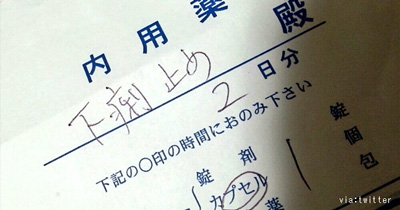 内用薬 殿
下痢止め 2日分
下記の○印の時間におのみ下さい
錠剤 錠
カプセル 個
薬 包
via:twitter